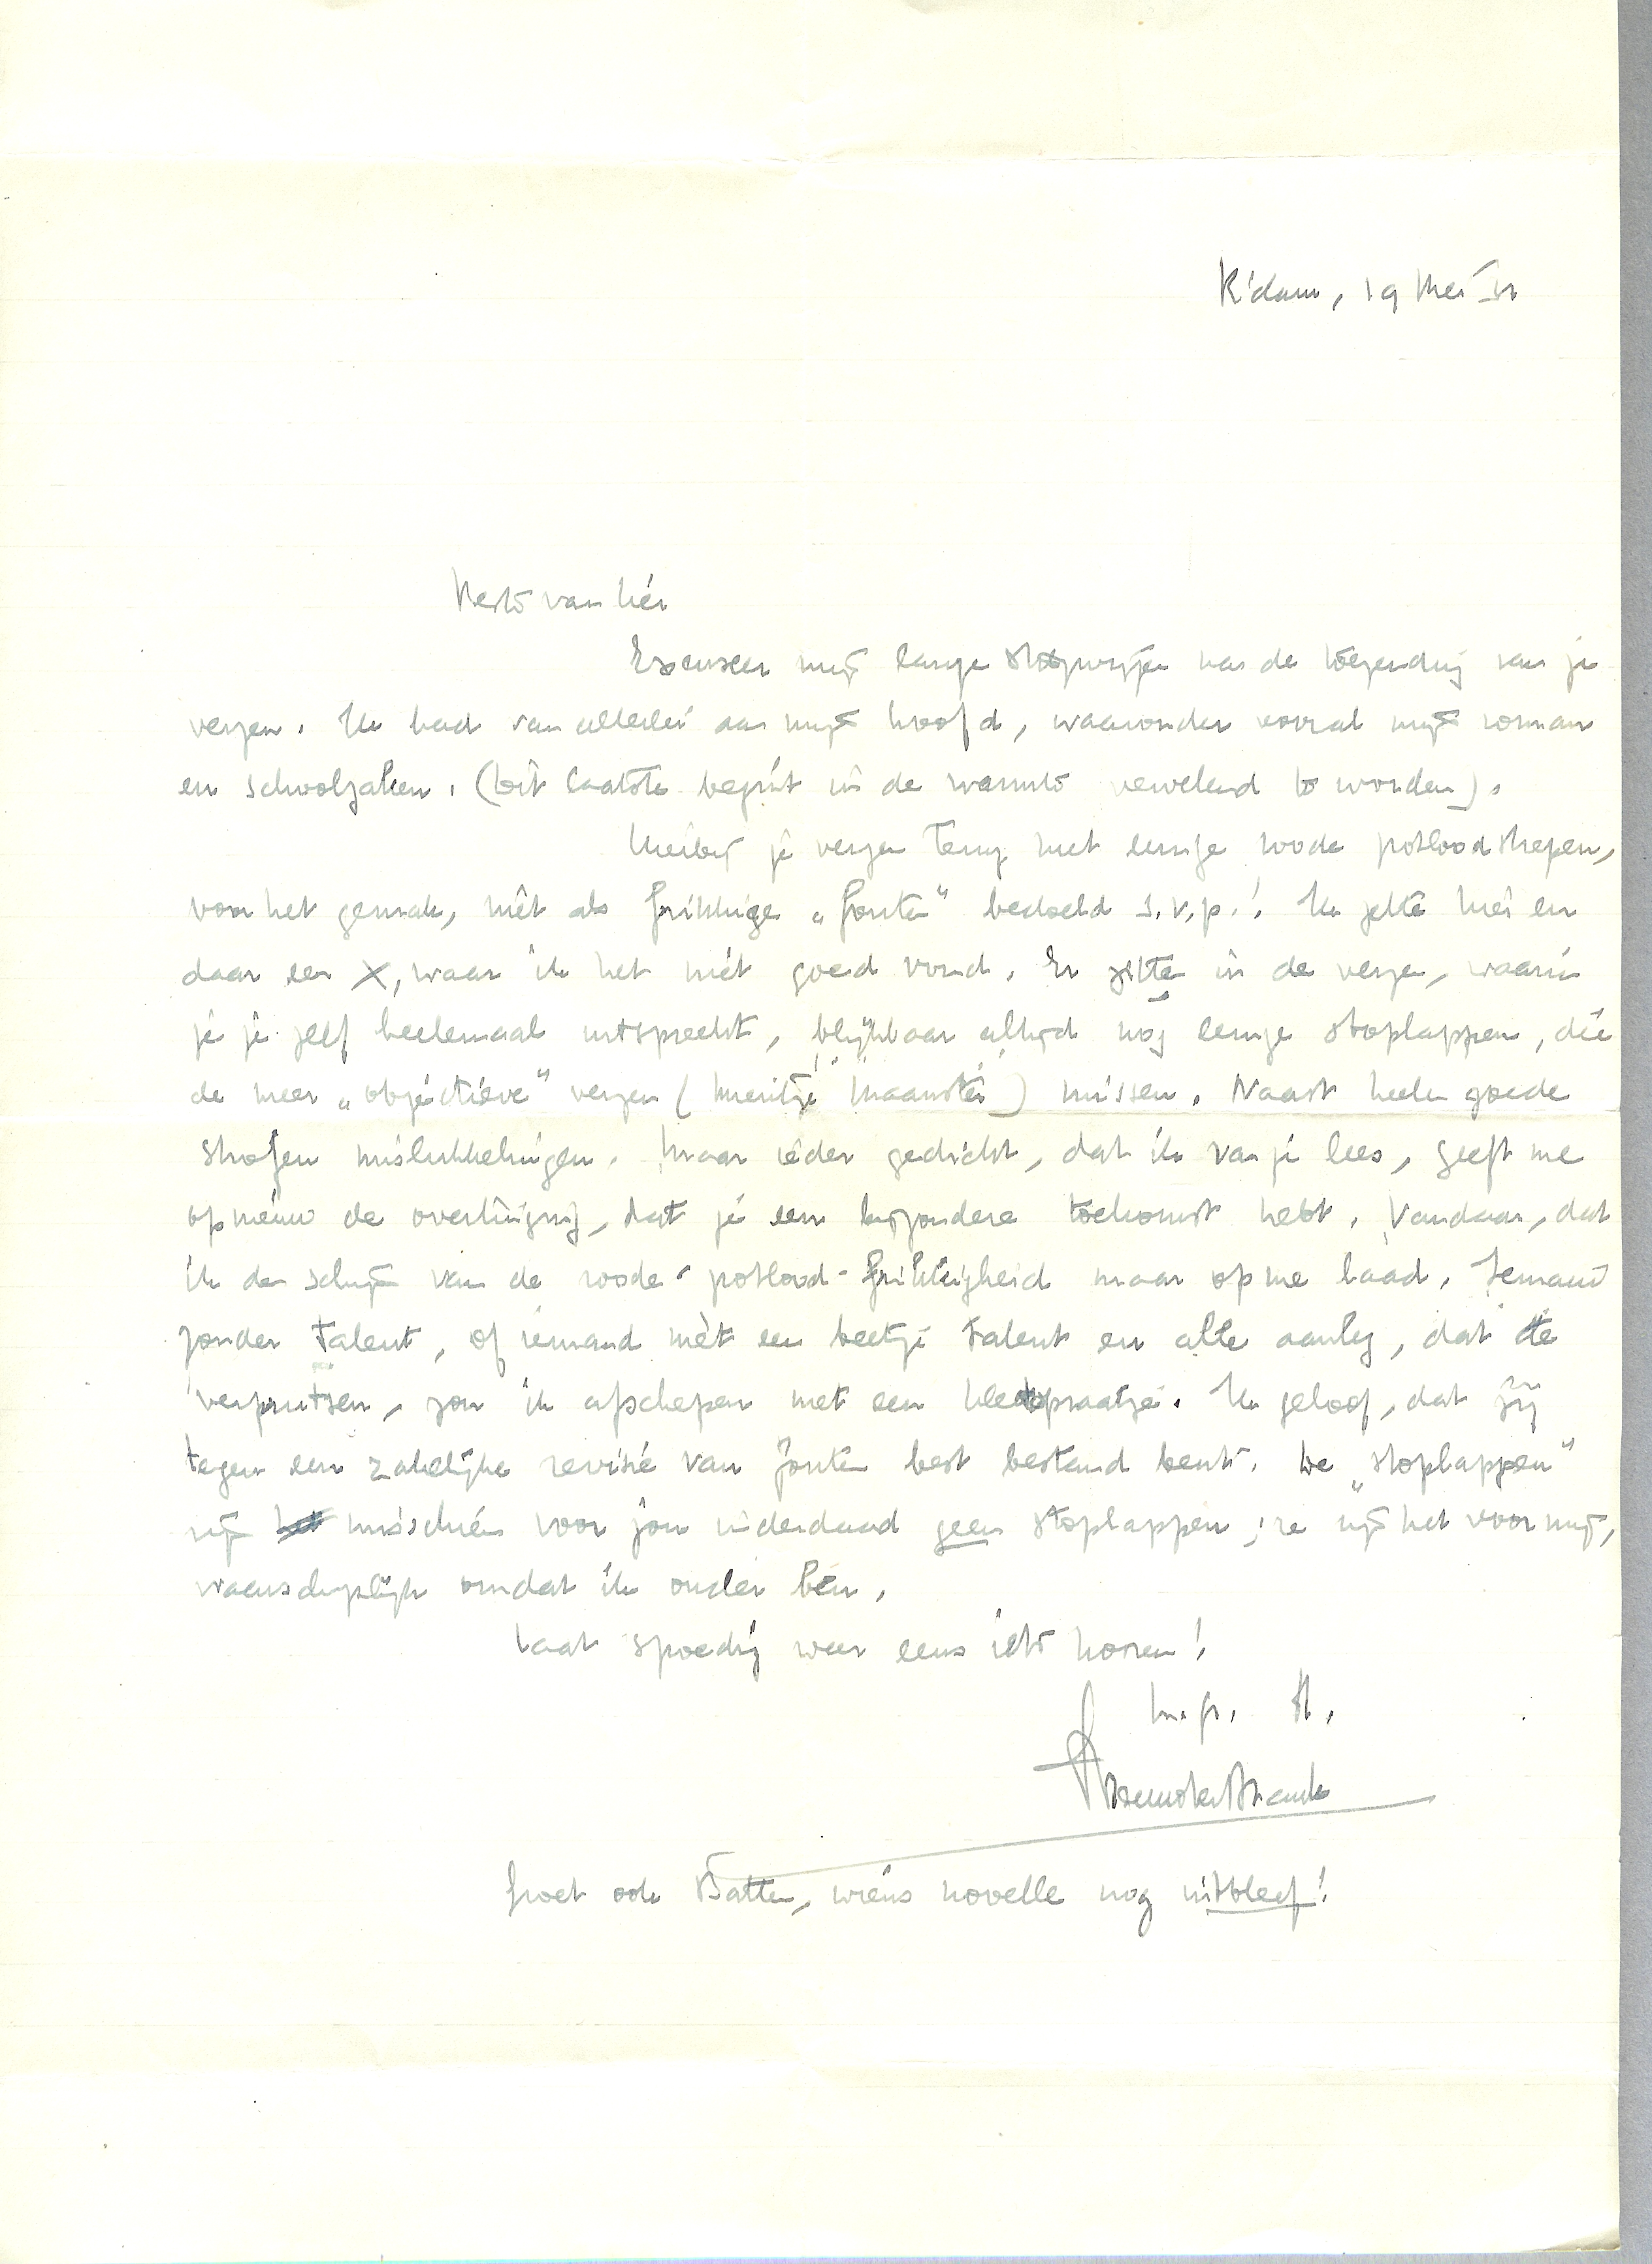 R'dam, 19 Mei
Beste van Lier
Excuseer mijn lange stilzwijgen na de toezending van je
verzen. Ik had van allerlei aan mijn hoofd, waaronder vooral mijn roman
en schoolzaken. (Dit laatste begint in de warmte vervelend te worden).
Hierbij je verzen terug met eenige roode potloodstrepen,
voor het gemak, niet als frikkige „fouten" bedoeld s.v.p.! Ik zette hier en
daar een X, waar ik het niet goed vond. Er zitten in de verzen, waarin
je je zelf heelemaal uitspreekt, blijkbaar altijd nog eenige stoplappen, die
de meer „objectieve" verzen ( Maanster) missen. Naast heele goede
strofen mislukkelingen. Maar ieder gedicht, dat ik van je lees, geeft me
opnieuw de overtuiging, dat je een bijzondere toekomst hebt. Vandaar, dat
ik de schijn van de roode-potlood-frikkigheid maar op me laad. Iemand
zonder talent, of iemand mèt een beetje talent en alle aanleg, dat te
verprutsen, zou ik afschepen met een praatje. Ik geloof, dat jij
tegen een zakelijke revisie van fouten best bestand bent. De „stoplappen"
zijn misschien voor jou inderdaad geen stoplappen; ze zijn het voor mij,
waarschijnlijk omdat ik ouder ben.
Laat spoedig weer eens iets hooren!
m. gr. tt.
Menno ter Braak
Groet ook Batten, wiens novelle nog uitbleef!